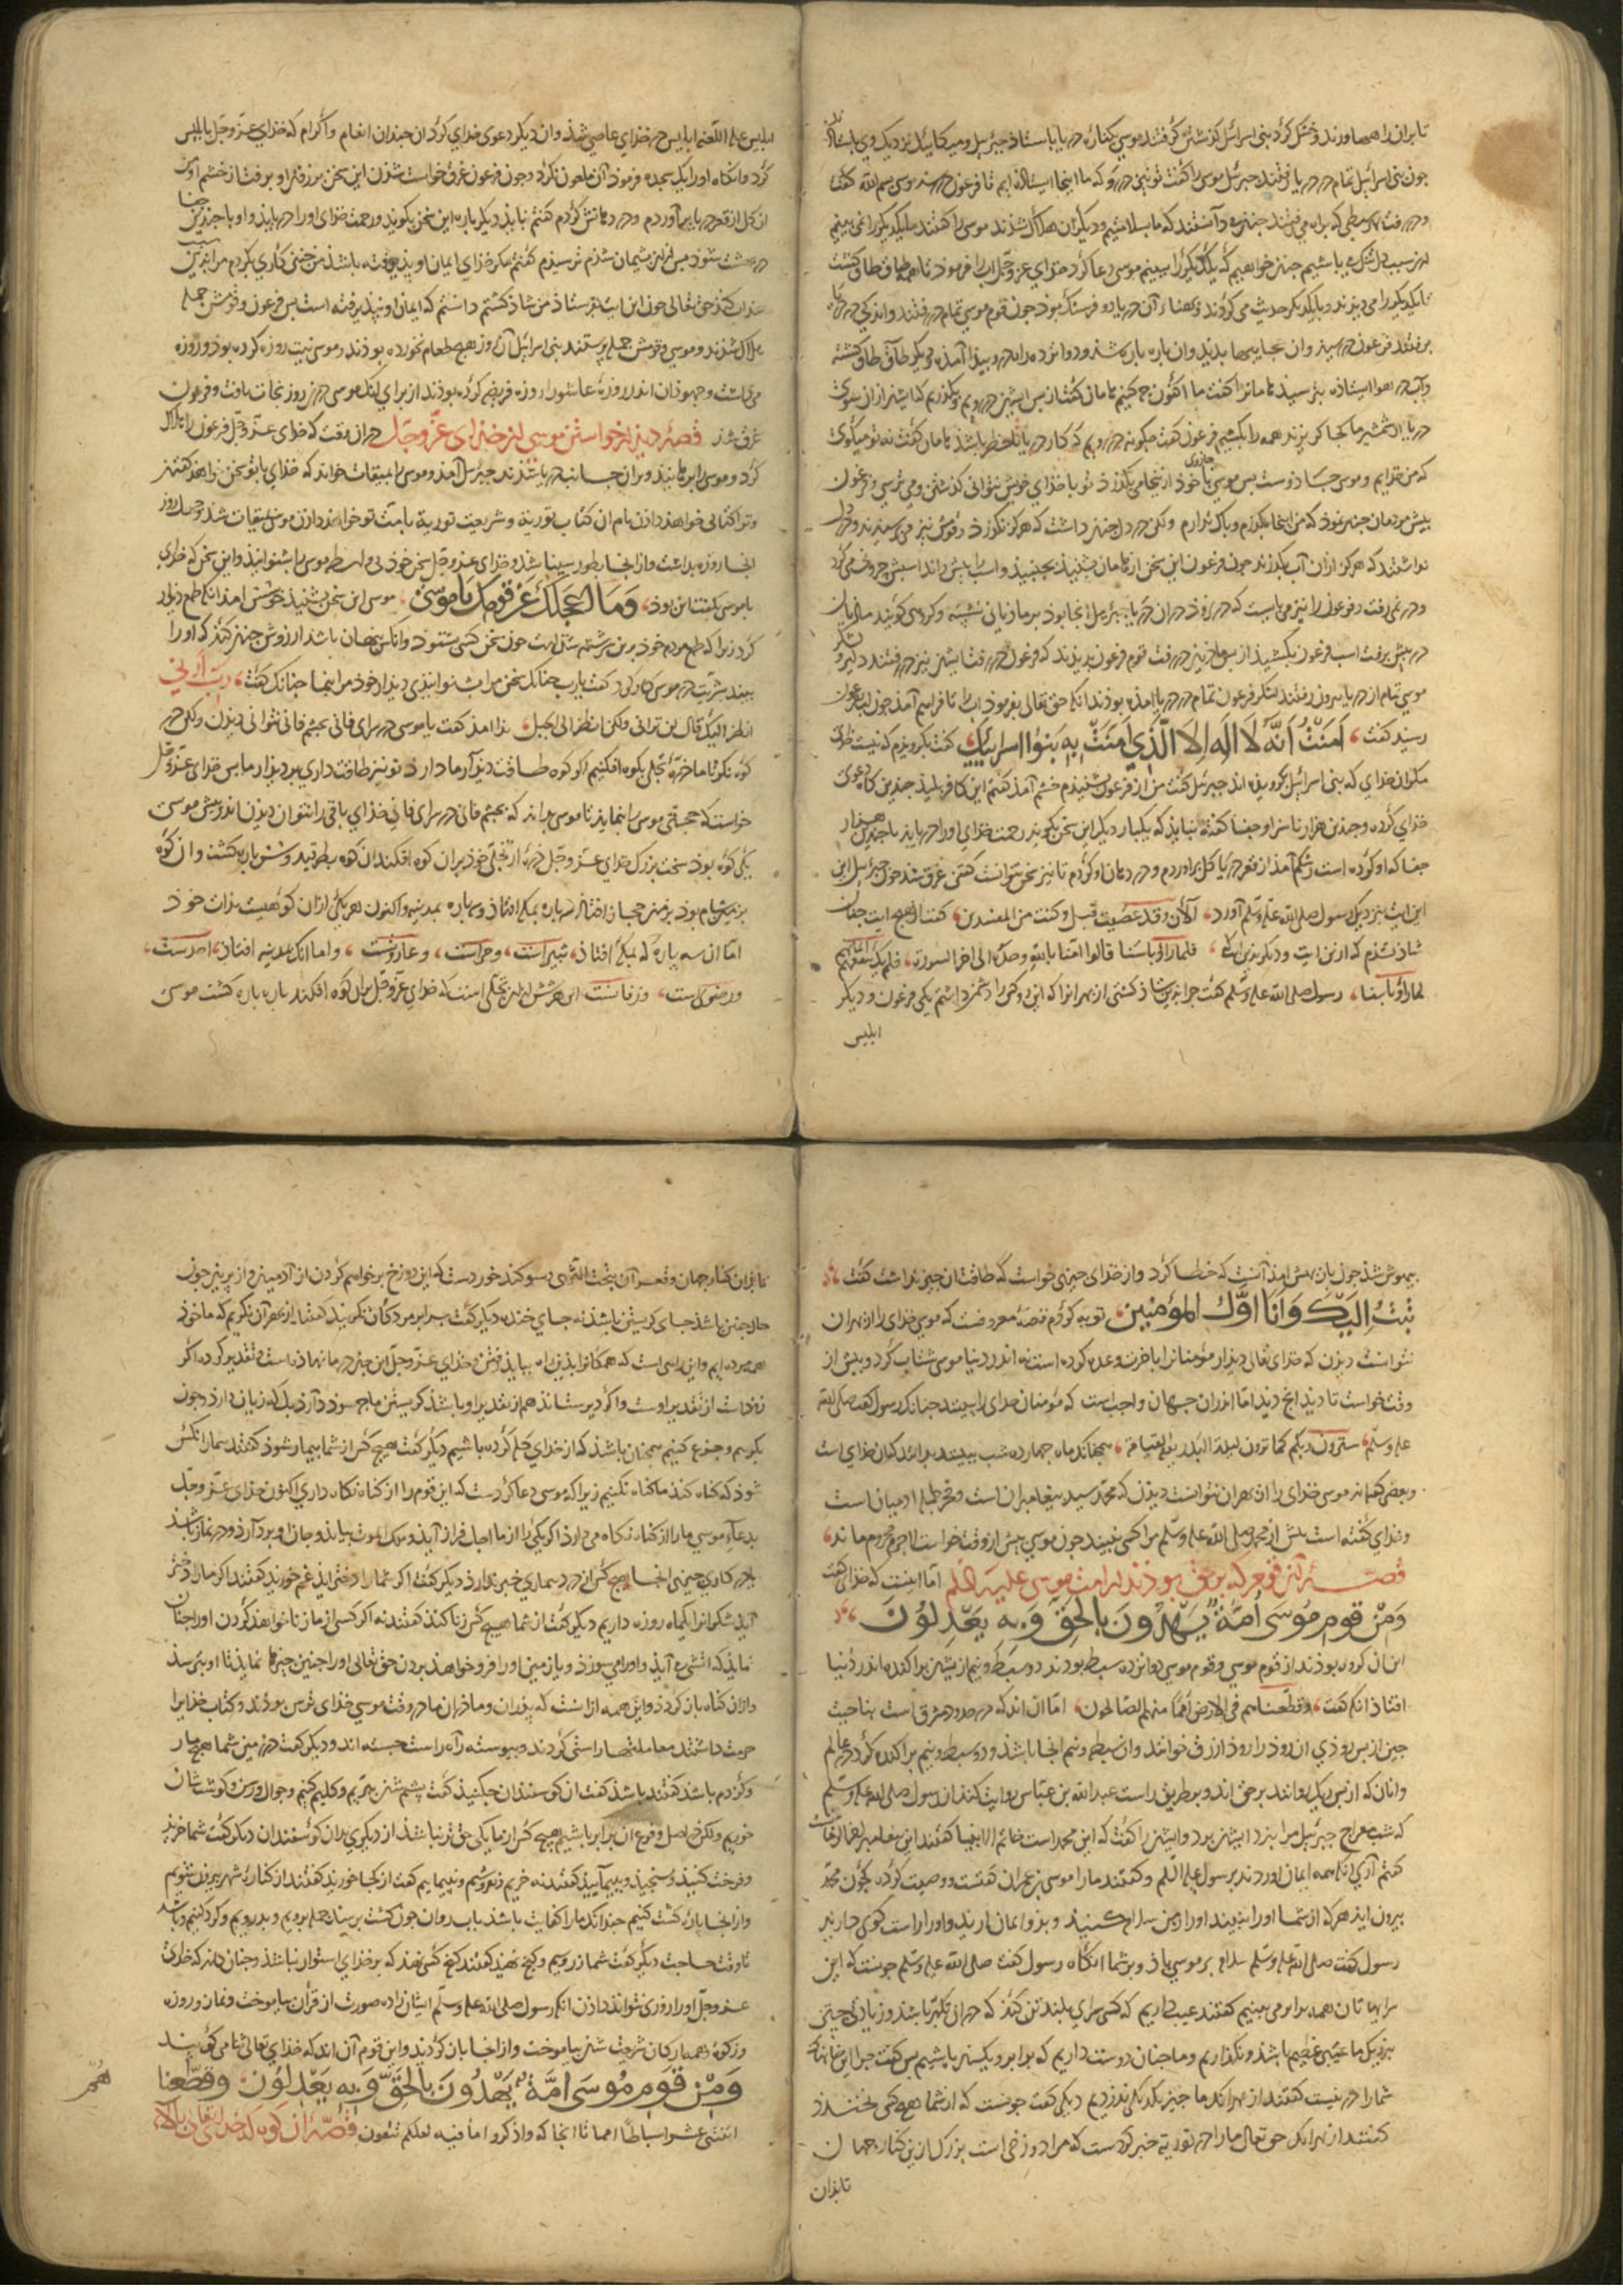 تا بران راهها و زید و خشک کرد بنی اسرائیل گذشتن گرفتند موسی بکناره دریا بایستاد جبرئیل و میکائیل نزدیک وی بایستاد
جون بنی اسرائیل تمام در دریا رفتند جبرئیل موسی را گفت تو نیز در رو که ما اینجا ایستاده ایم تا فرعون در رسد موسی بسم الله گفت
و در رفت هر سبطی که براه می رفتند جنین دانستند که ما بسلامتیم و دیکران هلاک شدند موسی را گفتند ما یکدیکر را نمی بینیم
دل شکسته باشیم جنان خواهیم که یکدیکر را ببینیم موسی دعا کرد خدای عزوجل آب را فرمود تا همه طاق طاق کشت
تا یکدیکر را می دیدند و با یکدیکر حدیث می کردند و بهناء آن دریا دو فرسنک بود جون قوم موسی تمام در رفتند
فرعون در رسید و آن عجایبها بدید و آن باره باره شده و دوازده راه در وی بدید آمده
و آب در هوا ایستاده بترسید هامان را گفت ما اکنون جه کنیم هامان گفت از بس ایشان در رویم و بگذریم
فرعون گفت جکونه در رویم که کار دریا با خطر باشد هامان گفت نه تو میکوئی
که من خدایم و موسی جادوست بس موسی با جادوی خود از اینجا می بگذرد تو با خدای خویش نتوانی گذشتن و می ترسی و فرعون
بیش مردمان جنین نمود که من اینجا بگذرم و باک ندارم ولکن در دل جنین داشت که هرکز نگذرد و قومش نیز می ترسیدند
نداشتند که هرکز از آن آب بگذرند جون فرعون این سخن از هامان بشنید بجنبید و اسب را بیش راند اسبش جرو نخ می کرد
و در نمی رفت و فرعون را نیز می بایست که در نرود در آن دریا جبرئیل آنجا بود بر مادیانی نشسته و کروهی کویند میکائیل
در بیش برفت اسب فرعون بکشید از بس مادیان در رفت قوم فرعون بدیدند که فرعون در رفت ایشان نیز در رفتند
موسی تمام از دریا بیرون رفتند لشکر فرعون تمام در دریا آمده بودند آنکه حق تعالی بفرمود آب را تا فراهم آمد جون آب بفرعون
رسید گفت، آمَنْتُ أَنَّهُ لَا إِلَهَ إِلَّا الَّذِي آمَنَتْ بِهِ بَنُوا إِسْرَائِيلَ، گفت بکرویدم که نیست خدای
مکر آن خدای که بنی اسرائیل بکرویده اند جبرئیل گفت من از فرعون بشنیدم خشم آمد گفتم این کافر بلید جندین کاه دعوی
خدای کرده و جندین هزار ناسزا و جفا گفته نباید که یکبار دیکر این سخن بکوید رحمت خدای او را دریابد با جندین هزار
جفا که او کرده است خشمم آمد از قعر دریا کل برآوردم و در دهان او کردم تا نیز سخن نتوانست گفتن غرق شد جون جبرئیل این
آیت بنزدیک رسول صلی الله علیه وسلم آورد، آلآن وقد عصیت قبل وکنت من المفسدین، گفت
شاد شدم که از این آیت و دیکر بدین آیت که، فلما رأوا بأسنا قالوا آمنا بالله وحده الی آخر السورة، فلم یک ینفعهم ایمانهم
لما رأوا بأسنا، رسول صلی الله علیه وسلم گفت جرا بدین شاد کشتی از بهر آنرا که این دو کس را دشمن داشتم یکی فرعون و دیکر
ابلیس
ابلیس علیه اللعنه ابلیس در خدای عاصی شد و آن دیکر دعوی خدای کرد از جندان انعام و اکرام که خدای عزوجل با ابلیس
کرد و آنکاه او را یک سجده فرمود آن ملعون نکرد و جون فرعون غرق خواست شدن این سخن بر زفان او برفت از خشم او
کل از قعر دریا برآوردم و در دهانش کردم گفتم نباید دیکر باره این سخن بکوید و رحمت خدای او را دریابد و او با جندین جفا
در بهشت شود بس از آن بشیمان شدم ترسیدم گفتم مکر خدای ایمان او بذیرفته باشد
عذاب کند حق تعالی جون این آیت بفرستاد من شاد کشتم دانستم که ایمان او نبذیرفته است بس فرعون و قومش جمله
هلاک شدند و موسی و قومش جمله برستند بنی اسرائیل آن روز هیج طعام نخورده بودند و موسی نیت روزه کرده بود و روزه
می داشت و جهودان اندر روزهٔ عاشورا روزه فریضه کرده بودند از برای آنک موسی درین روز نجات یافت و فرعون
غرق شد قصهٔ دیدار خواستن موسی از خدای عزّ وجلّ در آن وقت که خدای عزوجل فرعون را هلاک
کرد و موسی را برهانید و بر آن جانب دریا شدند جبرئیل آمد و موسی را بمیقات خواند که خدای با تو سخن خواهد گفتن
و ترا کتابی خواهد دادن نام آن کتاب توریة و شریعت توریة بامت تو خواهد دادن موسی بمیقات شد و جهل روز
آنجا روزه بداشت و از آنجا بطور سینا شد و خدای عزوجل سخن خود بی واسطه موسی را بشنوانید و این سخن که خدای
با موسی گفت این بود، وَمَا أَعْجَلَكَ عَنْ قَوْمِكَ يَا مُوسَى، موسی این سخن بشنید خوشش آمد آنکه طمع دیدار
کرد زیرا که طبع مردم خود برین سرشته شده است جون سخن کسی شنود و آنکس نهان باشد آرزوش جنین کند که او را
ببیند موسی گفت یا رب جنانک سخن مرا شنوانیدی دیدار خود مرا بنما جنانک گفت، رب أرني
انظر الیک قال لن ترانی ولکن انظر الی الجبل، ندا آمد گفت یا موسی در سرای فانی بجشم فانی نتوانی دیدن ولکن در
کوه نکر تا ما ذرهٔ تجلی بکوه افکنیم اگر کوه طاقت دیدار ما دارد تو نیز طاقت داری بر دیدار ما بس خدای عزوجل
خواست که حجتی موسی را بنماید تا موسی بداند که بجشم فانی در سرای فانی خدای باقی را نتوان دیدن اندر بیش موسی
یکی کوه بود سخت بزرک خدای عزوجل ذرهٔ از تجلی خود بر آن کوه افکند آن کوه بطرقید و شش باره کشت و آن کوه
بزمین شام بود بزمین حجاز افتاد سه باره بمکه افتاد و سه باره بمدینه و اکنون هر یکی از آن کوهیست بذات خود
اما آن سه باره که بمکه افتاد، ثبیر است، و حرا است، و عار و ست، و اما آنک بمدینه افتاد، احد ست،
و رضوی است، و زقا نست این هر شش از آن تجلی است که خدای عزوجل بر آن کوه افکند باره باره کشت موسی
بیهوش شد جون باز بهش آمد دانست که خطا کرد و از خدای جیزی خواست که طاقت آن جیز نداشت گفت
تُبْتُ إِلَيْكَ وَأَنَا أَوَّلُ الْمُؤْمِنِينَ، توبه کردم قصهٔ معروفست که موسی خدای را از بهر آن
نتوانست دیدن که خدای تعالی دیدار مؤمنان را بآخرت وعده کرده است نه اندر دنیا موسی شتاب کرد و بیش از
وقت خواست تا دید آنج دید اما اندر آن جهان واجب است که مؤمنان خدای را ببینند جنانکه رسول گفت صلی الله
علیه وسلم، سترون ربکم کما ترون لیلة البدر یوم القیامة، همجنانک ماه جهارده شب ببینند بدانند که آن خدای است
و بعضی گفته اند موسی خدای را از بهر آن نتوانست دیدن که محمد سید بیغامبران است و فخر جمله آدمیان است
و خدای گفته است بیش از محمد صلی الله علیه وسلم مرا کسی نبیند جون موسی بیش از وقت خواست لاجرم محروم ماند،
قصّهٔ آن قوم که بر حق بودند از امت موسی علیه السّلم اما اینست که خدای گفت
وَمِنْ قَوْمِ مُوسَى أُمَّةٌ يَهْدُونَ بِالْحَقِّ وَبِهِ يَعْدِلُونَ
اینان کروهی بودند از قوم موسی و قوم موسی دوازده سبط بودند دو سبط و نیم از ایشان براکنده اندر دنیا
افتاد آنکه گفت، وقطعناهم فی الارض أمما منهم الصالحون، اما آن اند که در حدود مشرق است بناحیت
جین از بس رودی آن رود را رود ارزق خوانند و آن سبط و نیم آنجا باشند و دو سبط و نیم براکنده کرد در عالم
و آنان که از بس ریک روانند بر حق اند و بر طریق راست عبدالله بن عباس روایت کند از رسول صلی الله علیه وسلم
که شب معراج جبرئیل مرا بنزد ایشان برد و ایشان را گفت که این محمد است خاتم الانبیا گفتند این بیغامبر آخر الزمان است
گفتم آری آنکه همه ایمان آوردند برسول علیه السلم و گفتند ما را موسی بن عمران گفتست و وصیت کرده که جون محمد
بیرون آید هر که از شما او را ببیند او را از من سلام کنید و بدو ایمان آرید و او را راست کوی دارید
رسول گفت صلی الله علیه وسلم سلام بر موسی باد و بر شما آنکاه رسول گفت صلی الله علیه وسلم جونست که این
سراهاتان همه برابر می بینیم گفتند عیب داریم که کسی سرای بلندتر کند که در آن تکبر باشد و زیادتی جستن
بنزدیک ما عیبی عظیم باشد و نکذاریم و ما جنان دوست داریم که برابر و یکسان باشیم بس گفت جرا این خانهاء
شما را در نیست گفتند از بهر آنکه ما جیز یکدیکر ندزدیم دیکر گفت جونست که از شما هیج کس نخندد
گفتند از بهر آنک حق تعالی ما را در توریة خبر کردست که مرا دوزخی است بزرک از این کنار جهان
تا بدان
تا بدان کنار جهان و قعر آن بتحت الثری و سوکند خوردست که این دوزخ بر خواهم کردن از آدمیان و از بریان جون
حال جنین باشد جای کریستن باشد نه جای خنده دیکر گفت جرا بر مردکان نکریید گفتند از بهر آن نکرییم که ما خود
همه مرده ایم و این راهی است که همکنان را بدین راه بباید رفتن و خدای عزوجل این جیز در ما نهاده است و تقدیر کرده اگر
زود است از تقدیر اوست و اگر دیرست آن هم از تقدیر او باشد کریستن ما جه سود دارد بلکه زیان دارد جون
بکرییم و جزع کنیم همجنان باشد که از خدای کله کرده باشیم دیکر گفت هیج کس از شما بیمار شود گفتند بیمار آنکس
شود که کناه کند ما کناه نکنیم زیرا که موسی دعا کردست که این قوم را از کناه نکاه داری اکنون خدای عزوجل
بدعاء موسی ما را از کناه نکاه می دارد اگر یکی را از ما اجل فراز آید ملک الموت بیاید و جان او بردارد و در نماز باشد
یا در کاری جنین آنجا هیج کس از درد بیماری خبر ندارد دیکر گفت اگر شما را دختر آید غم خورید گفتند اگر ما را دختر
آید شکرانه را یکماه روزه داریم دیکر گفت از شما هیج کس زنا کند گفتند نه اگر کسی از ما زنا خواهد کردن او را جنان
نماید که آتشی درآید و او را می سوزد و یا زمین او را فرو خواهد بردن حق تعالی او را جنین جیزها نماید تا او بترسد
و از آن کناه باز کردد و این همه از آنست که بدران و مادران ما در وقت موسی خدای ترس بودند و کتاب خدای را
حرمت داشتند معاملتها راستی کردند و بیوسته راه راست جسته اند و دیکر گفت در زمین شما هیج مار
و کژدم باشد گفتند باشد گفت آن کوسفندان جکنید گفت بشم شان ببریم و کلیم کنیم و جوال و رسن و کوشت شان
خوریم و لکن در اصل و فرع آن برابر باشیم هیج کس از ما یکی حق تر نباشد از دیکری بدان کوسفندان دیکر گفت شما خرید
و فروخت کنید و سنجید و بیمایید گفتند نه خریم و نه فروشیم و نه بیماییم گفت از کجا خورید گفتند از کناره شهر بیرون شویم
و از آنجا باز کشت کنیم جندانک ما را کفایت باشد بآب روان جون کشت برسد جمله برویم و بدرویم و کرد کنیم و باشد
تا وقت حاجت دیکر گفت شما زر و سیم و کنج نهید گفتند کنج کسی نهد که بر خدای استوار نباشد و جنان داند که خدای
عزوجل او را روزی نتواند دادن آنکه رسول صلی الله علیه وسلم ایشان را ده صورت از قرآن بیاموخت و نماز و روزه
و زکوة و همه ارکان شریعت شان بیاموخت و از آنجا باز کردید و این قوم آن اند که خدای تعالی ثنا می کوید
وَمِنْ قَوْمِ مُوسَى أُمَّةٌ يَهْدُونَ بِالْحَقِّ وَبِهِ يَعْدِلُونَ وَقَطَّعْنَا
هُم
اثنتی عشرة اسباطا امما تا آنجا که واذکروا ما فیه لعلکم تتقون قصّهٔ آن کوه که خدای تعالی بالاء